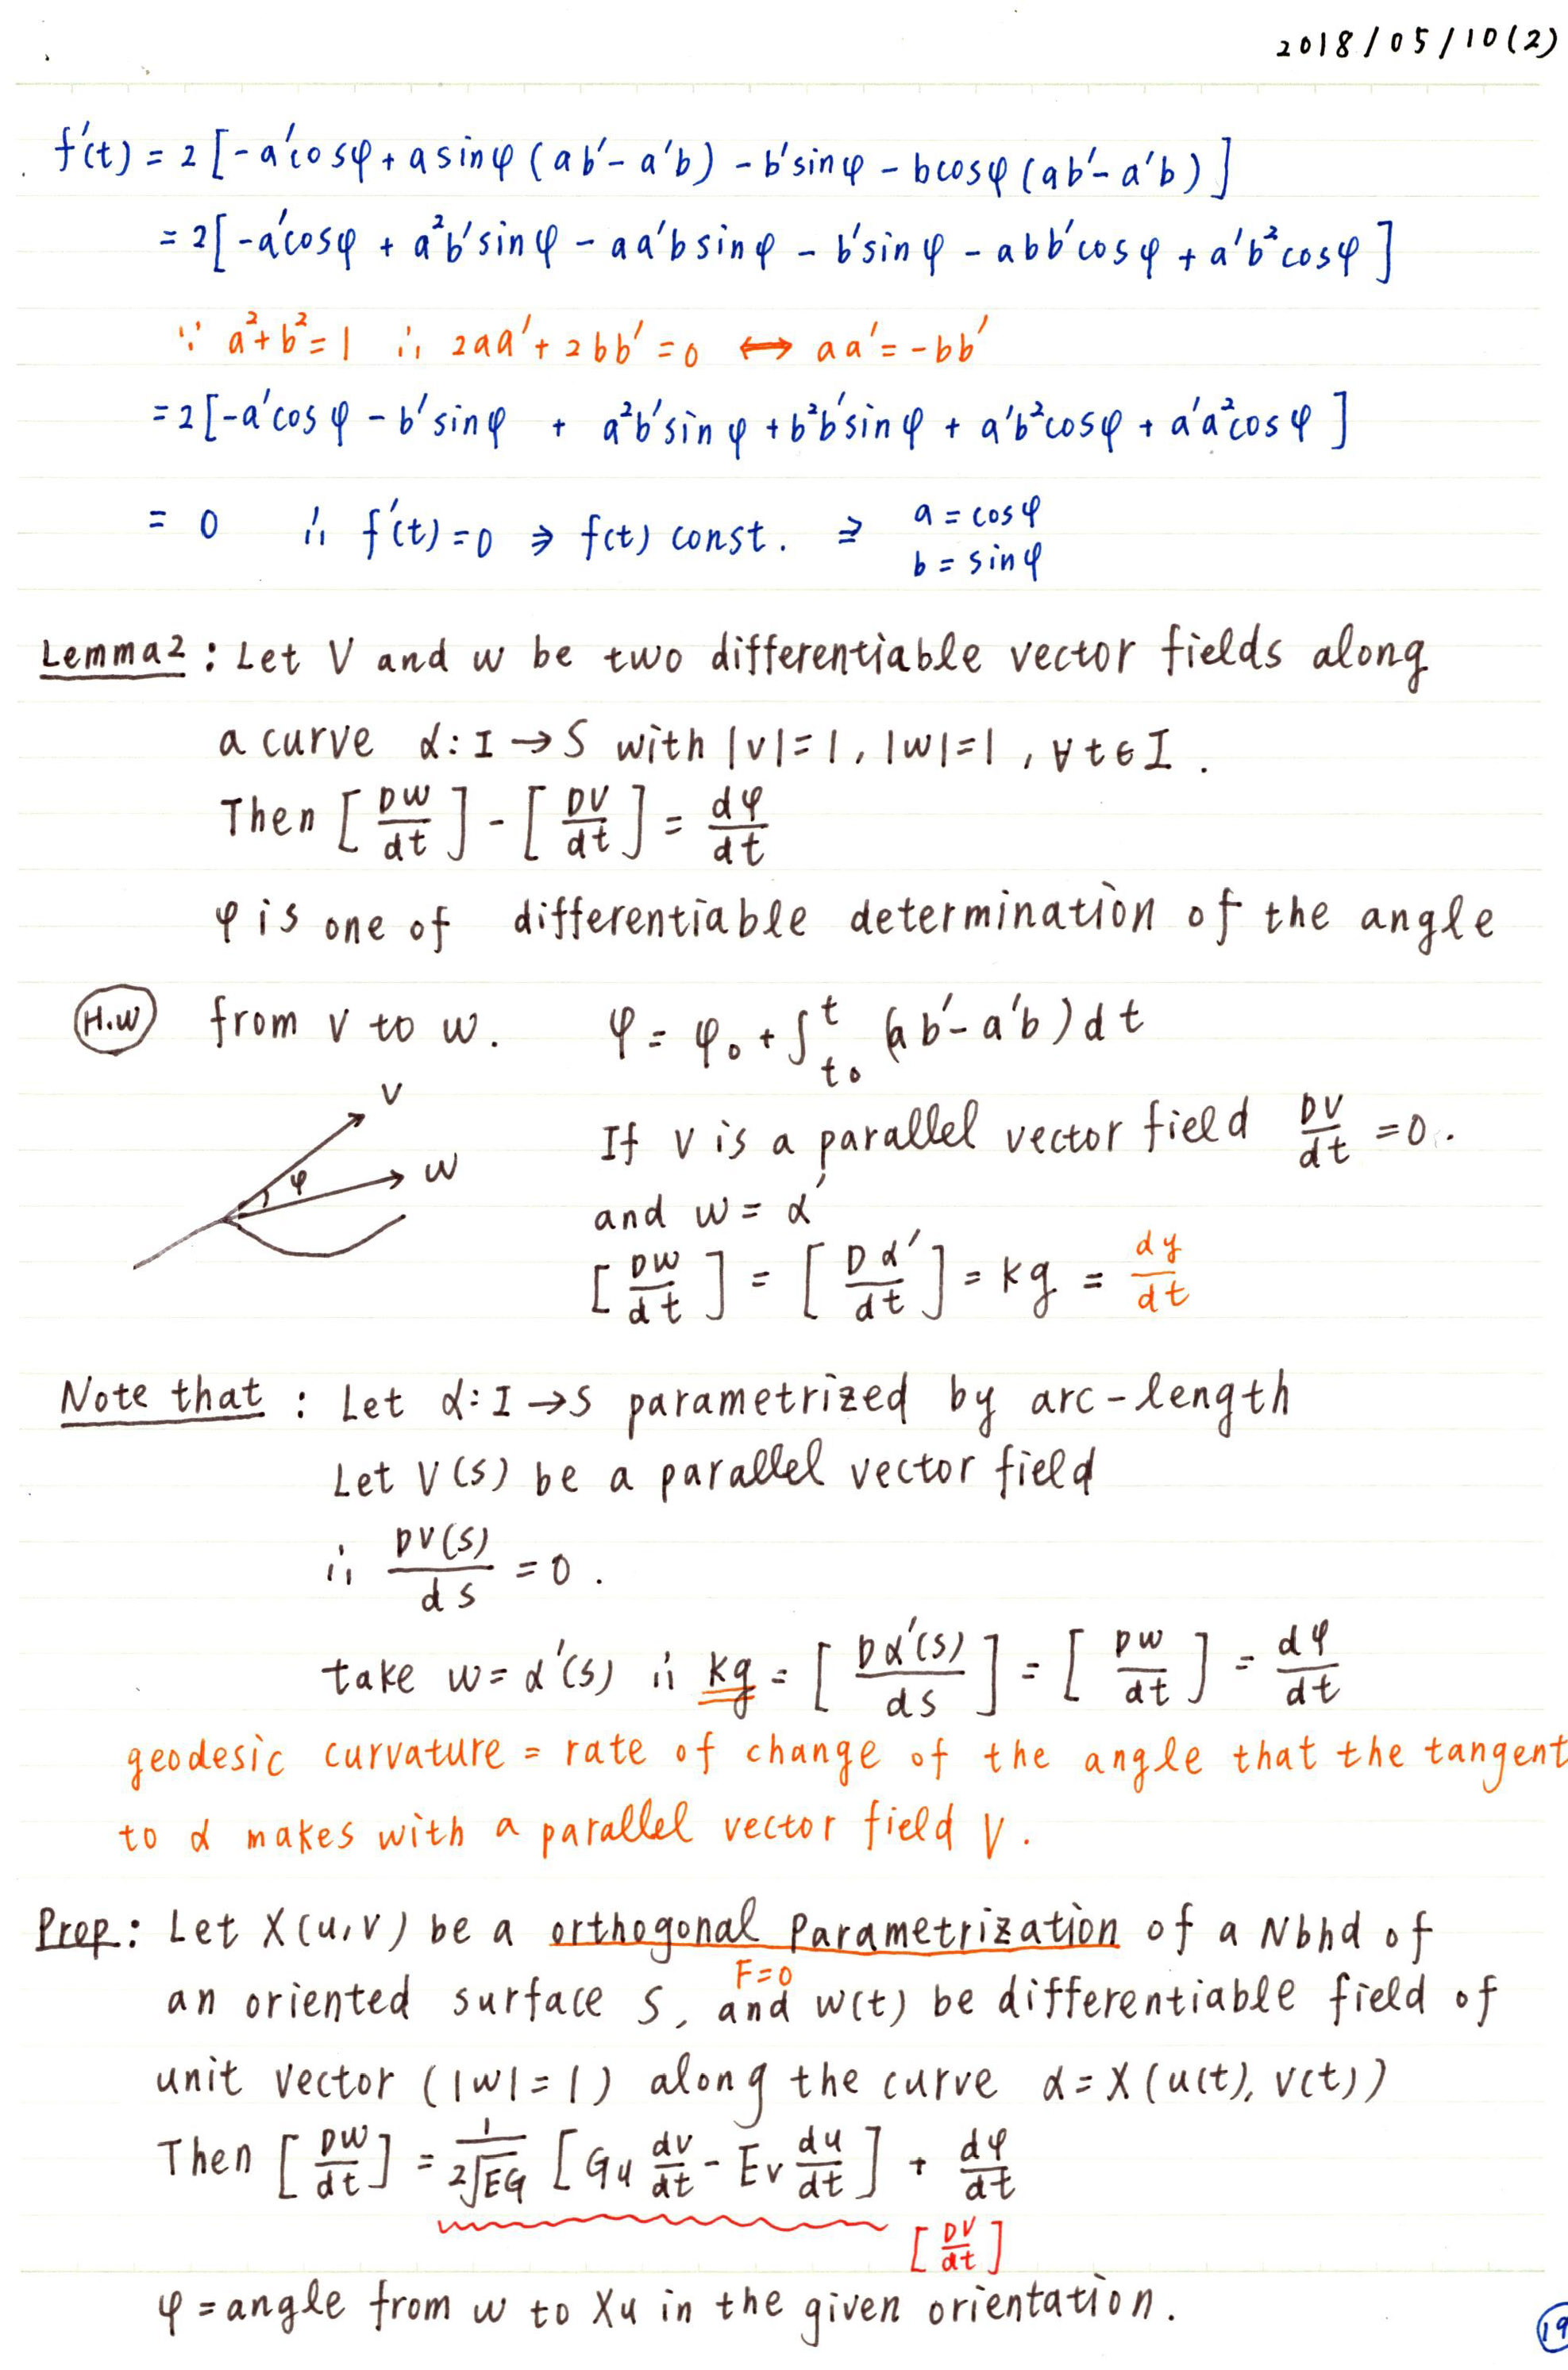 2018/05/10(2)
f'(t) = 2 [-a'cosφ + a sinφ (ab'- a'b) - b'sinφ - bcosφ (ab'- a'b)]
= 2[-a'cosφ + a²b'sinφ - aa'b sinφ - b'sinφ - abb'cosφ + a'b²cosφ]
∵ a²+b²=1 ∴ 2aa'+2bb'=0 ⟷ aa'=-bb'
= 2[-a'cosφ - b'sinφ + a²b'sinφ + b²b'sinφ + a'b²cosφ + a'a²cosφ]
= 0 ∴ f'(t)=0 ⇒ f(t) const. ⇒ a = cosφ
b = sinφ
Lemma2 : Let V and w be two differentiable vector fields along
a curve α: I → S with |v|=1, |w|=1, ∀t∈I.
Then [Dw/dt] - [DV/dt] = dφ/dt
φ is one of differentiable determination of the angle
H.W from v to w. φ = φ₀ + ∫_{t₀}^{t} (ab'- a'b)dt
V
w
φ
If v is a parallel vector field DV/dt = 0.
and w = α'
[Dw/dt] = [Dα'/dt] = kg = dy/dt
Note that : Let α: I → S parametrized by arc-length
Let V(s) be a parallel vector field
∴ DV(s)/ds = 0.
take w = α'(s) ∴ kg = [Dα'(s)/ds] = [Dw/dt] = dφ/dt
geodesic curvature = rate of change of the angle that the tangent
to α makes with a parallel vector field V.
Prop.: Let X(u,v) be a orthogonal Parametrization of a Nbhd of
F=0
an oriented surface S, and w(t) be differentiable field of
unit vector (|w|=1) along the curve α = X(u(t), v(t))
Then [Dw/dt] = 1/2√EG [Gu dv/dt - Ev du/dt] + dφ/dt
[DV/dt]
φ = angle from w to Xu in the given orientation.
19